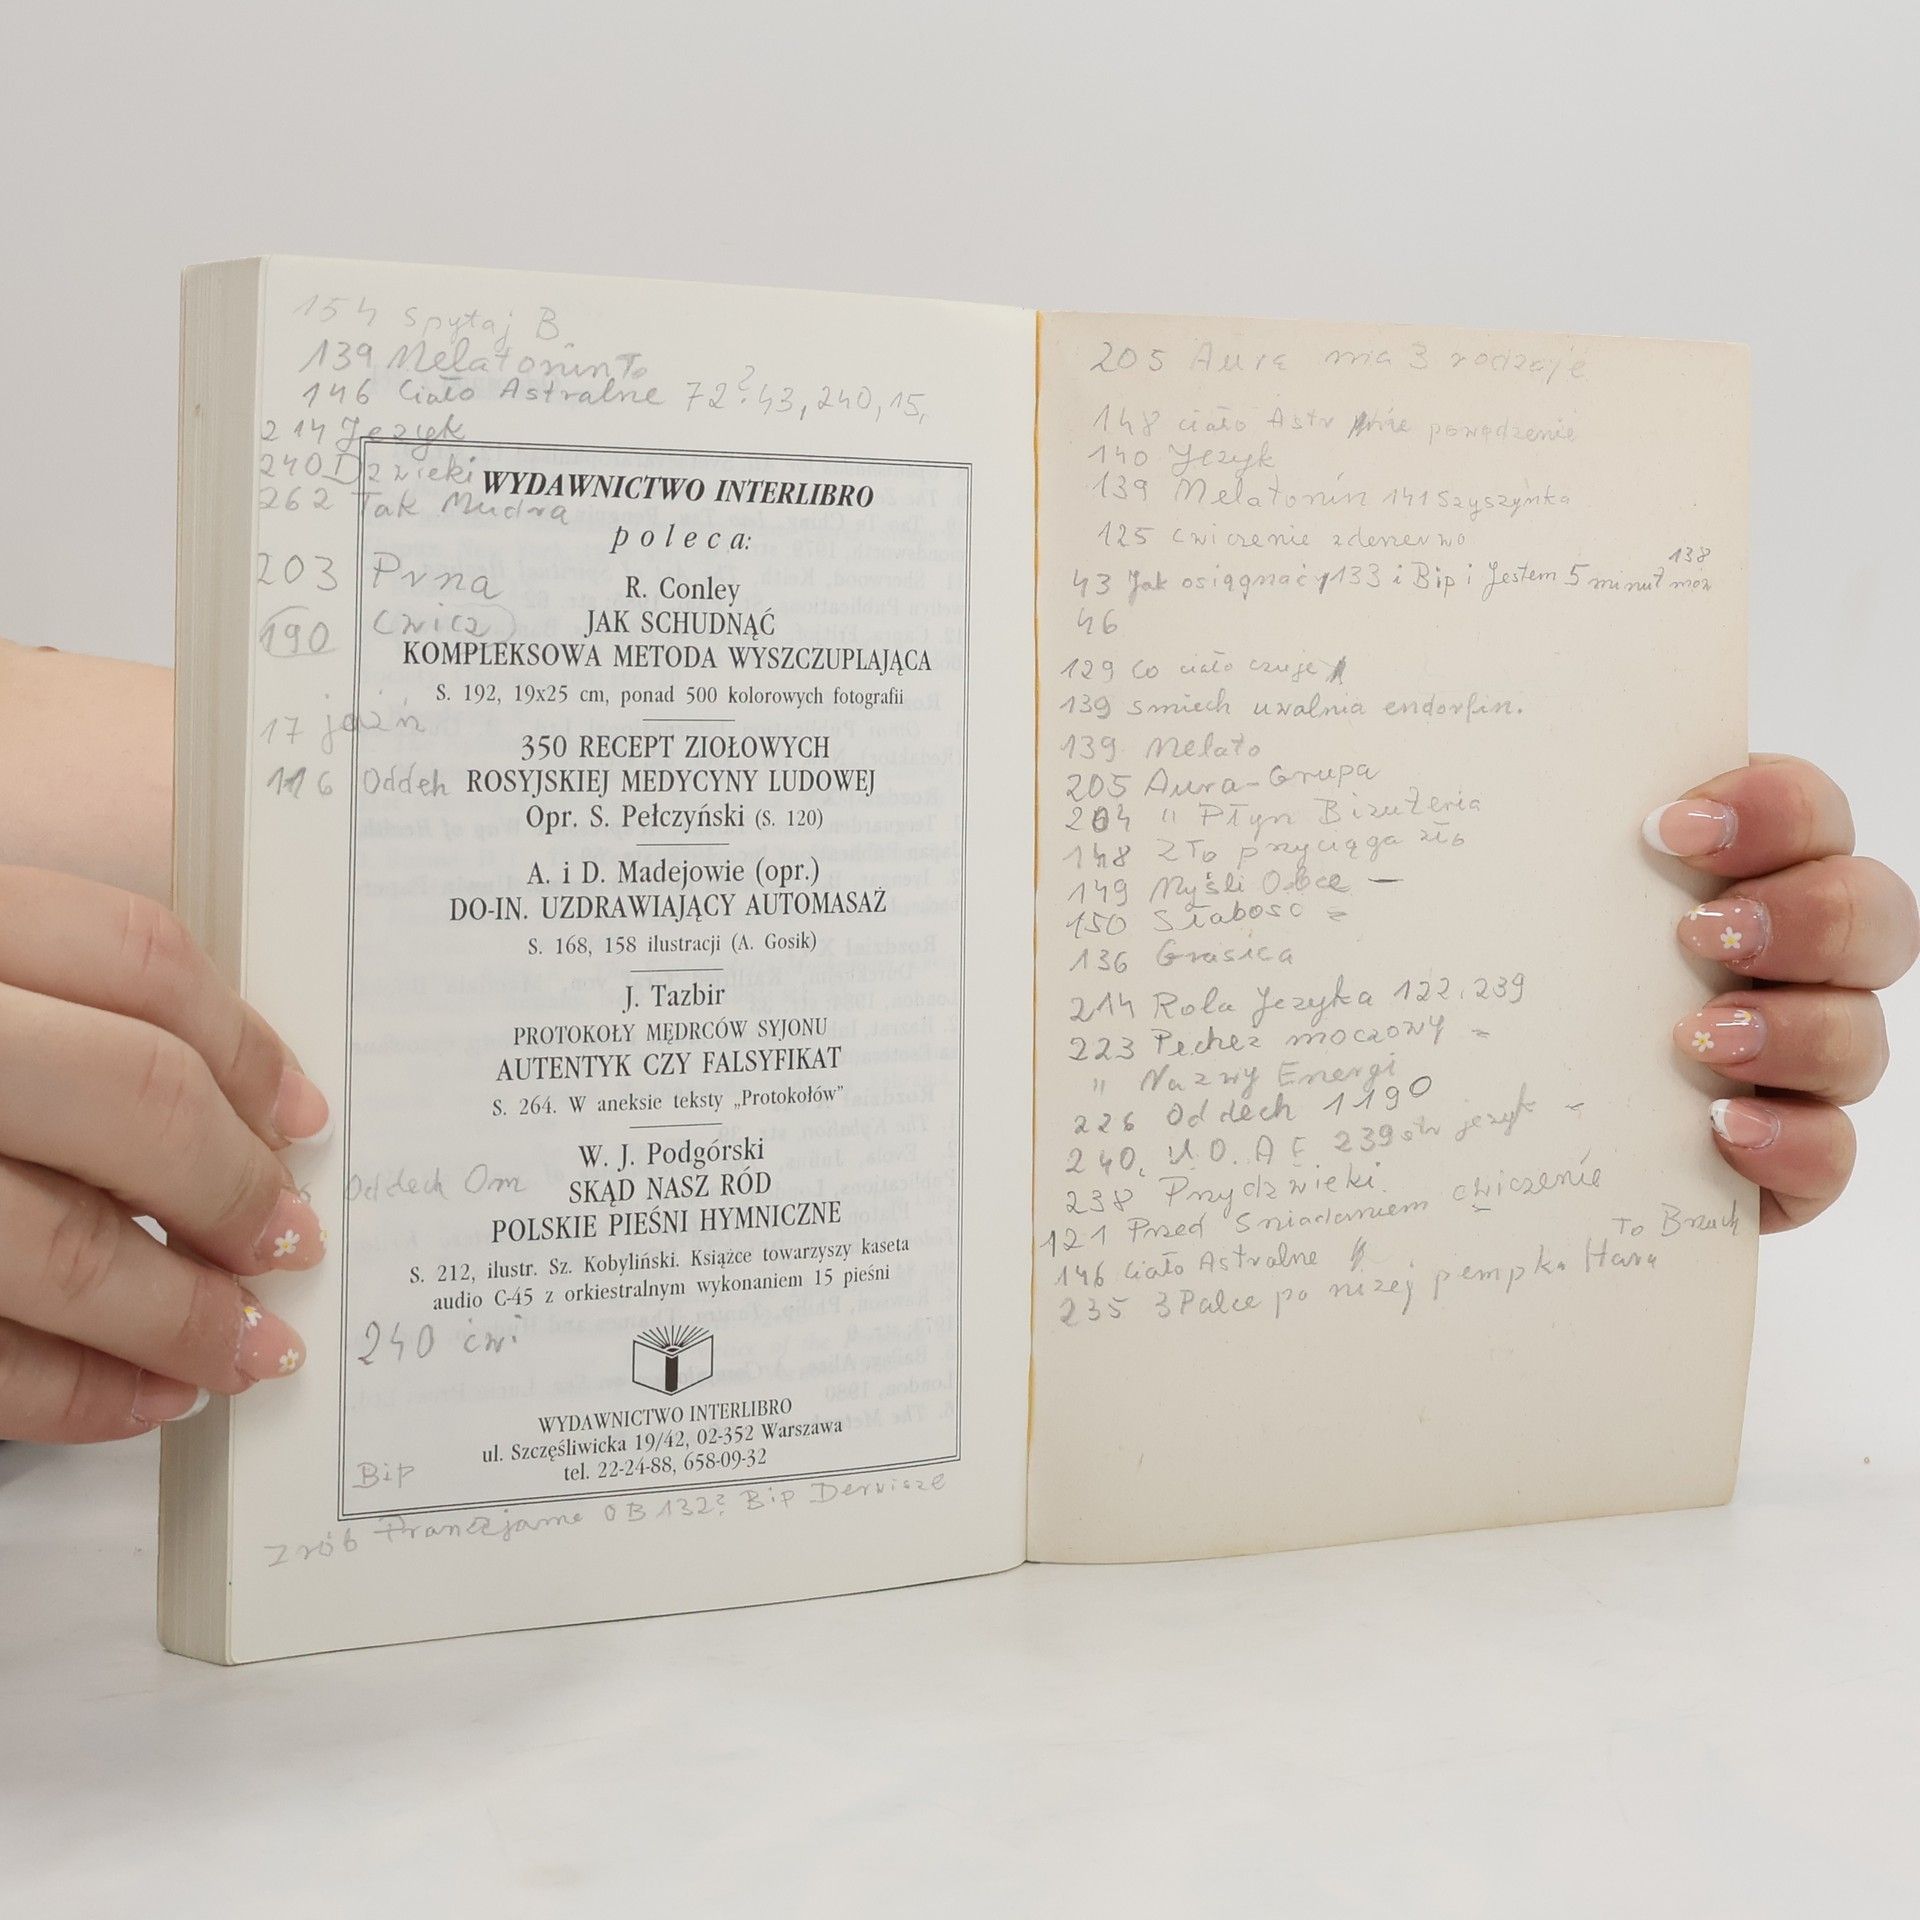 154 Spytaj B
139 Melatonin To
146 Ciało Astralne 72? 43, 240, 15,
214 Język
240 Dzwieki
262 Tak Mudra
WYDAWNICTWO INTERLIBRO
poleca:
203 Prna
R. Conley
190 (ćwicz)
JAK SCHUDNĄĆ
KOMPLEKSOWA METODA WYSZCZUPLAJĄCA
S. 192, 19x25 cm, ponad 500 kolorowych fotografii
17 jaźń
350 RECEPT ZIOŁOWYCH
116 Oddeh
ROSYJSKIEJ MEDYCYNY LUDOWEJ
Opr. S. Pełczyński (S. 120)
A. i D. Madejowie (opr.)
DO-IN. UZDRAWIAJĄCY AUTOMASAŻ
S. 168, 158 ilustracji (A. Gosik)
J. Tazbir
PROTOKOŁY MĘDRCÓW SYJONU
AUTENTYK CZY FALSYFIKAT
S. 264. W aneksie teksty „Protokołów”
W. J. Podgórski
Oddech Om
SKĄD NASZ RÓD
POLSKIE PIEŚNI HYMNICZNE
S. 212, ilustr. Sz. Kobyliński. Książce towarzyszy kaseta
audio C-45 z orkiestralnym wykonaniem 15 pieśni
240 ćwi
WYDAWNICTWO INTERLIBRO
ul. Szczęśliwicka 19/42, 02-352 Warszawa
tel. 22-24-88, 658-09-32
Bip
Zrób OB 132? Bip Derwisze
205 Aura ma 3 rodzaje
148 ciało Astr
140 Język
139 Melatonin 141 Szyszynka
125 cwiczenie
138
43 Jak osiągnać 133 i Bip i Jestem 5 minut
46
129 Co ciało czuje
139 smiech uwalnia endorfin.
139 Melato
205 Aura-Grupa
204 " Płyn Biżuteria
148 Zło przyciąga zło
149 Myśli Obce —
150 Słabosc =
136 Grasica
214 Rola Języka 122, 239
223 Pecherz moczowy =
" Nazwy Energi
226 Oddech 1190
240, U. O. A E 239 str język -
238 Przydzwieki
121 Przed Sniadaniem cwiczenie
To Brzuch
146 Ciało Astralne
235 3 Palce po niżej pempka Hara